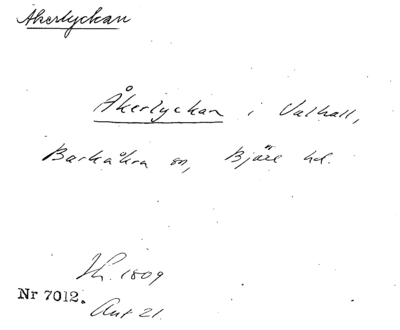 Åkerlyckan
Åkerlyckan i Valhall,
Barkåkra sn, Bjäre hd.
Sk. 1809
Nr 7012.
Ant 21.